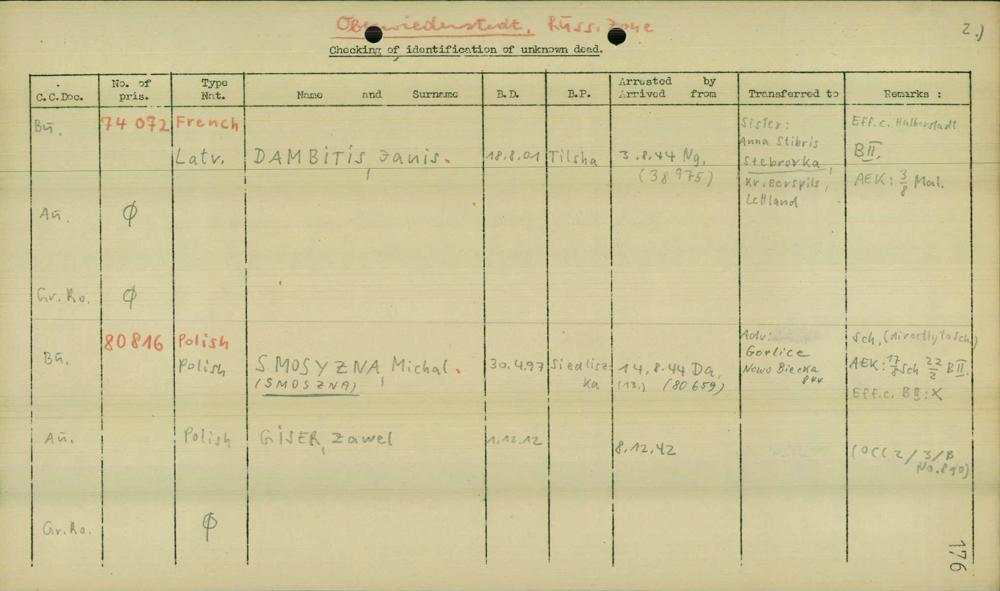 Oberwiederstedt, Russ. Zone
2.)
Checking of identification of unknown dead.
C.C.Doc. No. of pris. Type Nat. Name and Surname B.D. B.P. Arrested by Arrived from Transferred to Remarks :
Bū. 74 072 French Sister: Eff.c. Halberstadt
Latv. DAMBITIS, Janis. 18.8.01 Tilsha 3.8.44 Ng. Anna Stibris BII.
(38975) Stebrovka,
Kr. Berspils, AEK: 3/8 Mal.
Lettland
Aū. Ø
Gr.Ro. Ø
80816 Polish Adv: Sch. (directly to Sch)
Bū. Polish SMOSYZNA, Michal. 30.4.97 Siedlisz- 14.8.44 Da. Gorlice AEK: 17/8 Sch 22/2 BII.
(SMOSZNA) ka (13.) (80659) Nowo Biecka
Eff.c. BII: X
Aū. Polish GISER, Zawel 1.12.12 8.12.42 (OCC 2/3/B
No. 890)
Gr.Ro. Ø
176